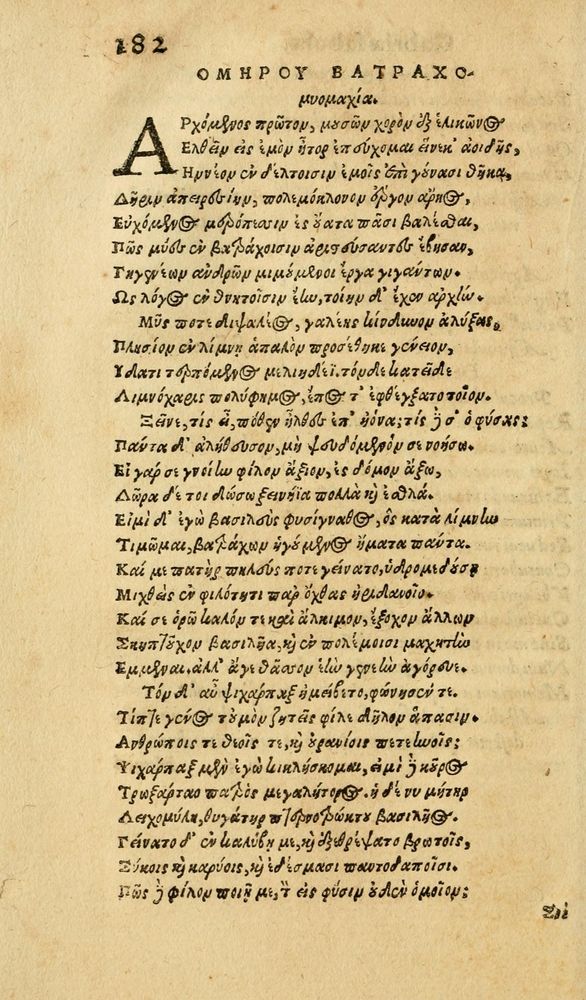 182
ΟΜΗΡΟΥ ΒΑΤΡΑΧΟ-
μυομαχία.
ΑΡχόμενος πρῶτον, μουσῶν χορὸν ἐξ ἑλικῶνος
Ἐλθεῖν εἰς ἐμὸν ἦτορ ἐπεύχομαι εἵνεκ' ἀοιδῆς,
Ἣν νέον ἐν δέλτοισιν ἐμοῖς ἐπὶ γούνασι θῆκα,
Δῆριν ἀπειρεσίην, πολεμόκλονον ἔργον ἄρηος,
Εὐχόμενος μερόπεσσιν ἐς οὔατα πᾶσι βαλέσθαι,
Πῶς μύες ἐν βατράχοισιν ἀριστεύσαντες ἔβησαν,
Γηγενέων ἀνδρῶν μιμούμενοι ἔργα γιγάντων.
Ως λόγος ἐν θνητοῖσιν ἔην, τοίην δ' ἔχον ἀρχήν.
Μῦς ποτε διψαλέος, γαλέης κίνδυνον ἀλύξας,
Πλησίον ἐν λίμνῃ ἁπαλὸν προσέθηκε γένειον,
Υδατι τερπόμενος μελιηδέϊ. τὸν δὲ κατεῖδε
Λιμνόχαρις πολύφημος, ἔπος τ' ἐφθέγξατο τοῖον.
Ξεῖνε, τίς εἶ, πόθεν ἦλθες ἐπ' ἠϊόνα; τίς δέ σ' ὁ φύσας;
Πάντα δ' ἀλήθευσον, μὴ ψευδόμενόν σε νοήσω.
Εἰ γάρ σε γνοίην φίλον ἄξιον, ἐς δόμον ἄξω,
Δῶρα δέ τοι δώσω ξεινήϊα πολλὰ καὶ ἐσθλά.
Εἰμὶ δ' ἐγὼ βασιλεὺς φυσίγναθος, ὃς κατὰ λίμνην
Τιμῶμαι, βατράχων ἡγούμενος ἤματα πάντα.
Καί με πατὴρ πηλεύς ποτε γείνατο, ὑδρομεδούσῃ
Μιχθεὶς ἐν φιλότητι παρ' ὄχθας ἠριδανοῖο.
Καί σε ὁρῶ καλόν τε καὶ ἄλκιμον, ἔξοχον ἄλλων
Σκηπτοῦχον βασιλῆα, καὶ ἐν πολέμοισι μαχητὴν
Ἔμμεναι. ἀλλ' ἄγε θᾶσσον ἑὴν γενεὴν ἀγόρευε.
Τὸν δ' αὖ ψιχάρπαξ ἠμείβετο, φώνησέν τε.
Τίπτε γένος τοὐμὸν ζητεῖς φίλε δῆλον ἅπασιν.
Ανθρώποις τε θεοῖς τε, καὶ οὐρανίοις πετεηνοῖς;
Ψιχάρπαξ μὲν ἐγὼ κικλήσκομαι, εἰμὶ δὲ κοῦρος
Τρωξάρταο πατρὸς μεγαλήτορος. ἡ δέ νυ μήτηρ
Λειχομύλη, θυγάτηρ πτερνοτρώκτου βασιλῆος.
Γείνατο δ' ἐν καλύβῃ με, καὶ ἐξεθρέψατο βρωτοῖς,
Σύκοις καὶ καρύοις, καὶ ἐδέσμασι παντοδαποῖσι.
Πῶς δὲ φίλον ποιῇ με, τ εἰς φύσιν οὐδὲν ὁμοῖον;